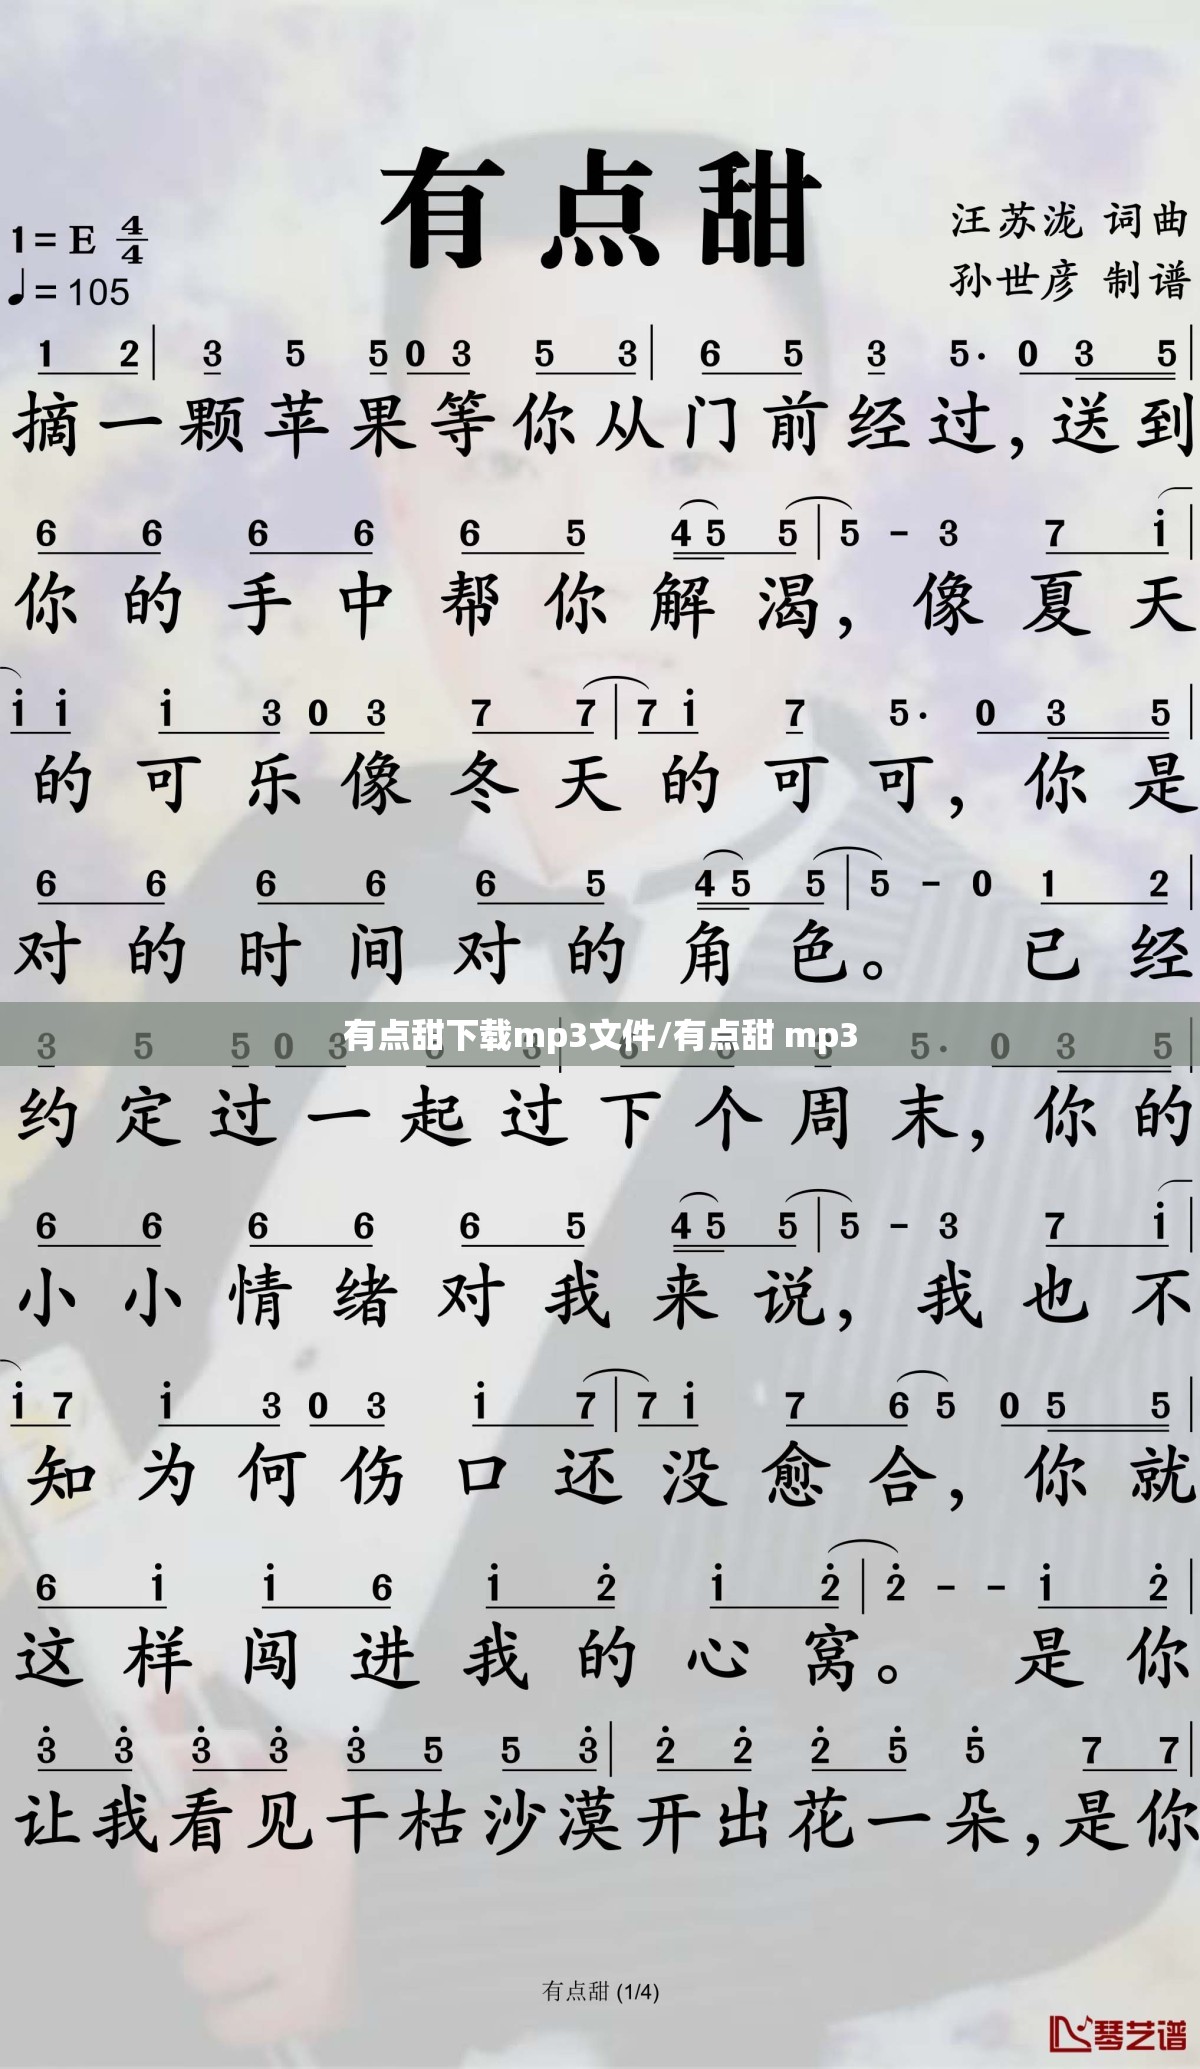 有点甜
1=E 4/4
♩=105
汪苏泷 词曲
孙世彦 制谱
1 2 | 3 5 5 0 3 5 3 | 6 5 3 5· 0 3 5 |
摘一颗苹果等你从门前经过，送到
6 6 6 6 6 5 4 5 5 | 5 - 3 7 i |
你的手中帮你解渴，像夏天
i i i 3 0 3 7 7 | 7 i 7 5· 0 3 5 |
的可乐像冬天的可可，你是
6 6 6 6 6 5 4 5 5 | 5 - 0 1 2 |
对的时间对的角色。 已经
有点甜下载mp3文件/有点甜 mp3
3 5 5 0 3 5 3 | 6 5 3 5· 0 3 5 |
约定过一起过下个周末，你的
6 6 6 6 6 5 4 5 5 | 5 - 3 7 i |
小小情绪对我来说，我也不
i 7 i 3 0 3 i 7 | 7 i 7 6 5 0 5 5 |
知为何伤口还没愈合，你就
6 i i 6 i 2 i 2 | 2 - - i 2 |
这样闯进我的心窝。 是你
3 3 3 3 3 5 5 3 | 2 2 2 5 5 7 7 |
让我看见干枯沙漠开出花一朵，是你
有点甜 (1/4)
琴艺谱